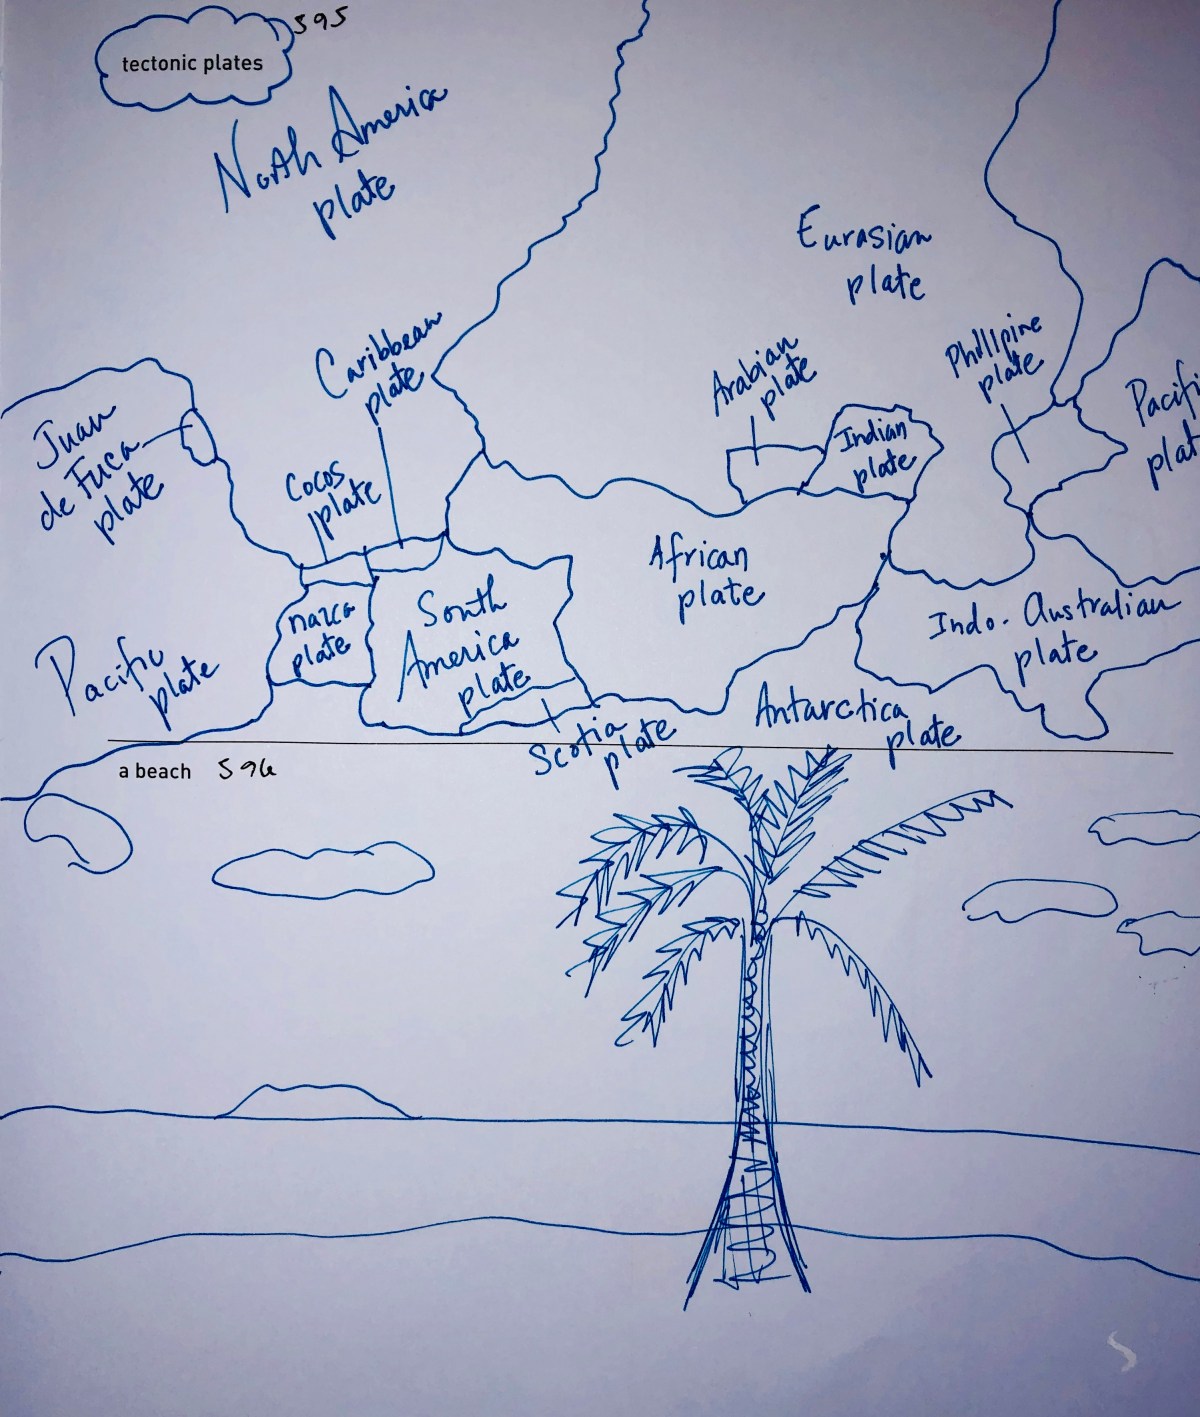 595
tectonic plates
North America
plate
Eurasian
plate
Caribbean
plate
Phillipine
plate
Arabian
plate
Pacifi
plat
Juan
de Fuca
plate
Indian
plate
Cocos
plate
African
plate
nazca
plate
South
America
plate
Indo-Australian
plate
Pacific
plate
Antarctica
plate
Scotia
plate
a beach 596